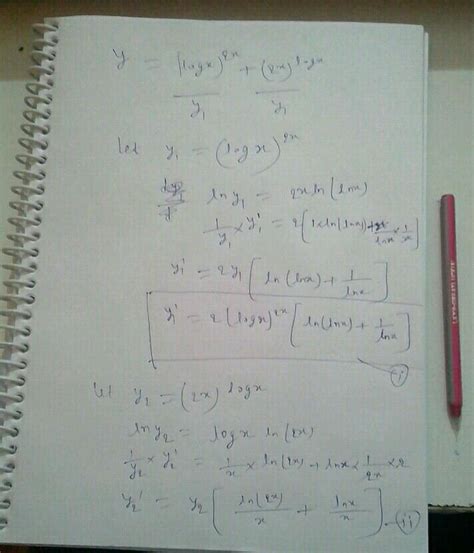 y = (logx)^2x + (2x)^logx
y₁ y₁
let y₁ = (logx)^2x
ln y₁ = 2x ln(lnx)
1/y₁ × y₁' = 2[1×ln(lnx) + x/lnx × 1/x]
y₁' = 2y₁ [ln(lnx) + 1/lnx]
y₁' = 2(logx)^2x [ln(lnx) + 1/lnx]
(i)
let y₂ = (2x)^logx
ln y₂ = logx ln(2x)
1/y₂ × y₂' = 1/x × ln(2x) + lnx × 1/2x × 2
y₂' = y₂ [ln(2x)/x + lnx/x] (ii)